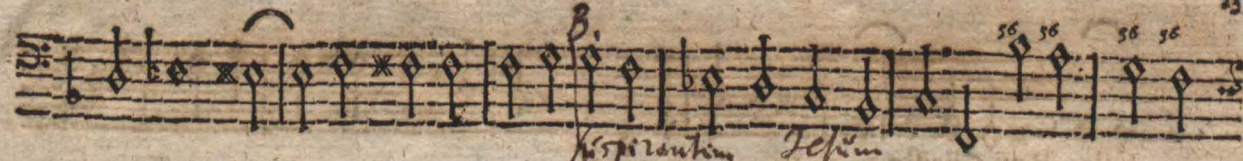 B.
56 56 56 56
suspirantem Jesum